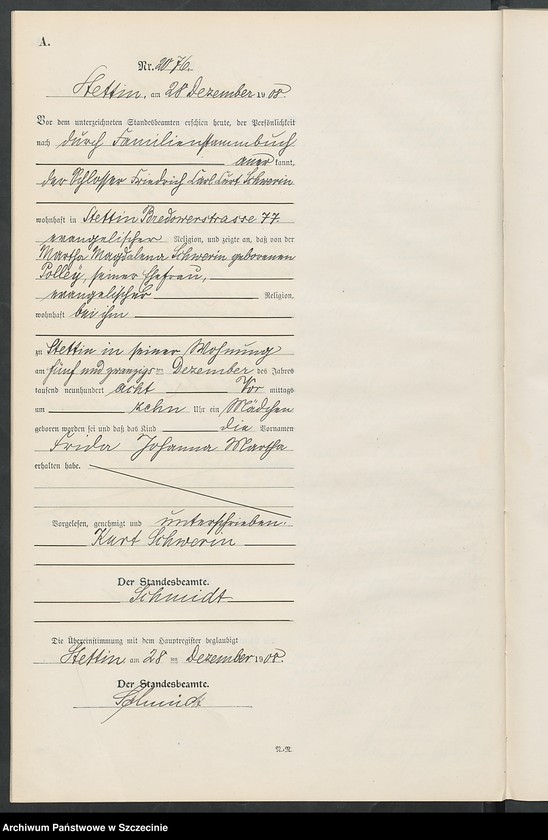 A.
Nr. 2076.
Stettin, am 28 Dezember 1908.
Vor dem unterzeichneten Standesbeamten erschien heute, der Persönlichkeit
nach durch Familienstammbuch
aner kannt,
der Schlosser Friedrich Carl Curt Schwerin
wohnhaft in Stettin Bredowerstrasse 77.
evangelischer Religion, und zeigte an, daß von der
Martha Magdalena Schwerin geborenen
Polley, seiner Ehefrau,
evangelischer Religion,
wohnhaft bei ihm
zu Stettin in seiner Wohnung
am fünf und zwanzigs ten Dezember des Jahres
tausend neunhundert acht Vor mittags
um zehn Uhr ein Mädchen
geboren worden sei und daß das Kind die Vornamen
Frida Johanna Martha
erhalten habe.
Vorgelesen, genehmigt und unterschrieben.
Kurt Schwerin
Der Standesbeamte.
Schmidt
Die Übereinstimmung mit dem Hauptregister beglaubigt
Stettin am 28 ten Dezember 1908.
Der Standesbeamte.
Schmidt
N.-R.
Archiwum Państwowe w Szczecinie